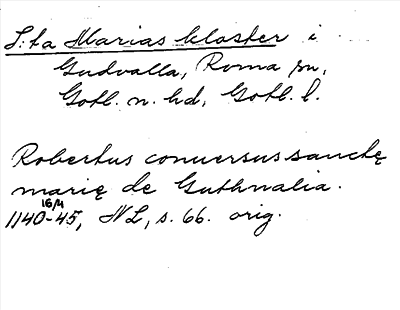 S:ta Marias kloster i
Gudvalla, Roma sn,
Gotl. n. hd, Gotl. l.
Robertus conuersus sanctę
marię de Guthnalia.
1140 16/4 -45, NL, s. 66. orig.